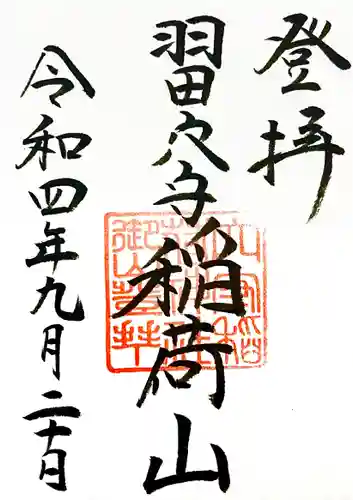 登拝
羽田穴守稲荷山
令和四年九月二十日
御山登拝